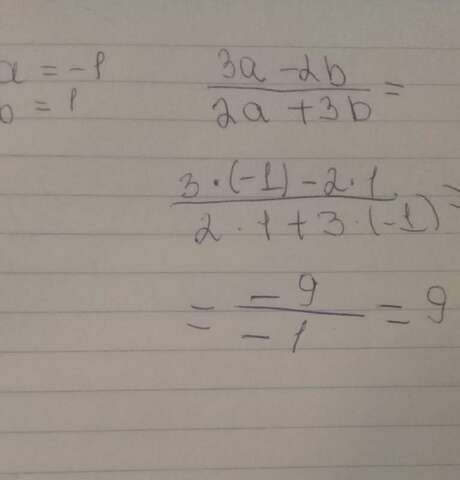 a = -1
b = 1
3a - 2b
2a + 3b =
3 · (-1) - 2 · 1
2 · 1 + 3 · (-1) =
= -9
-1 = 9